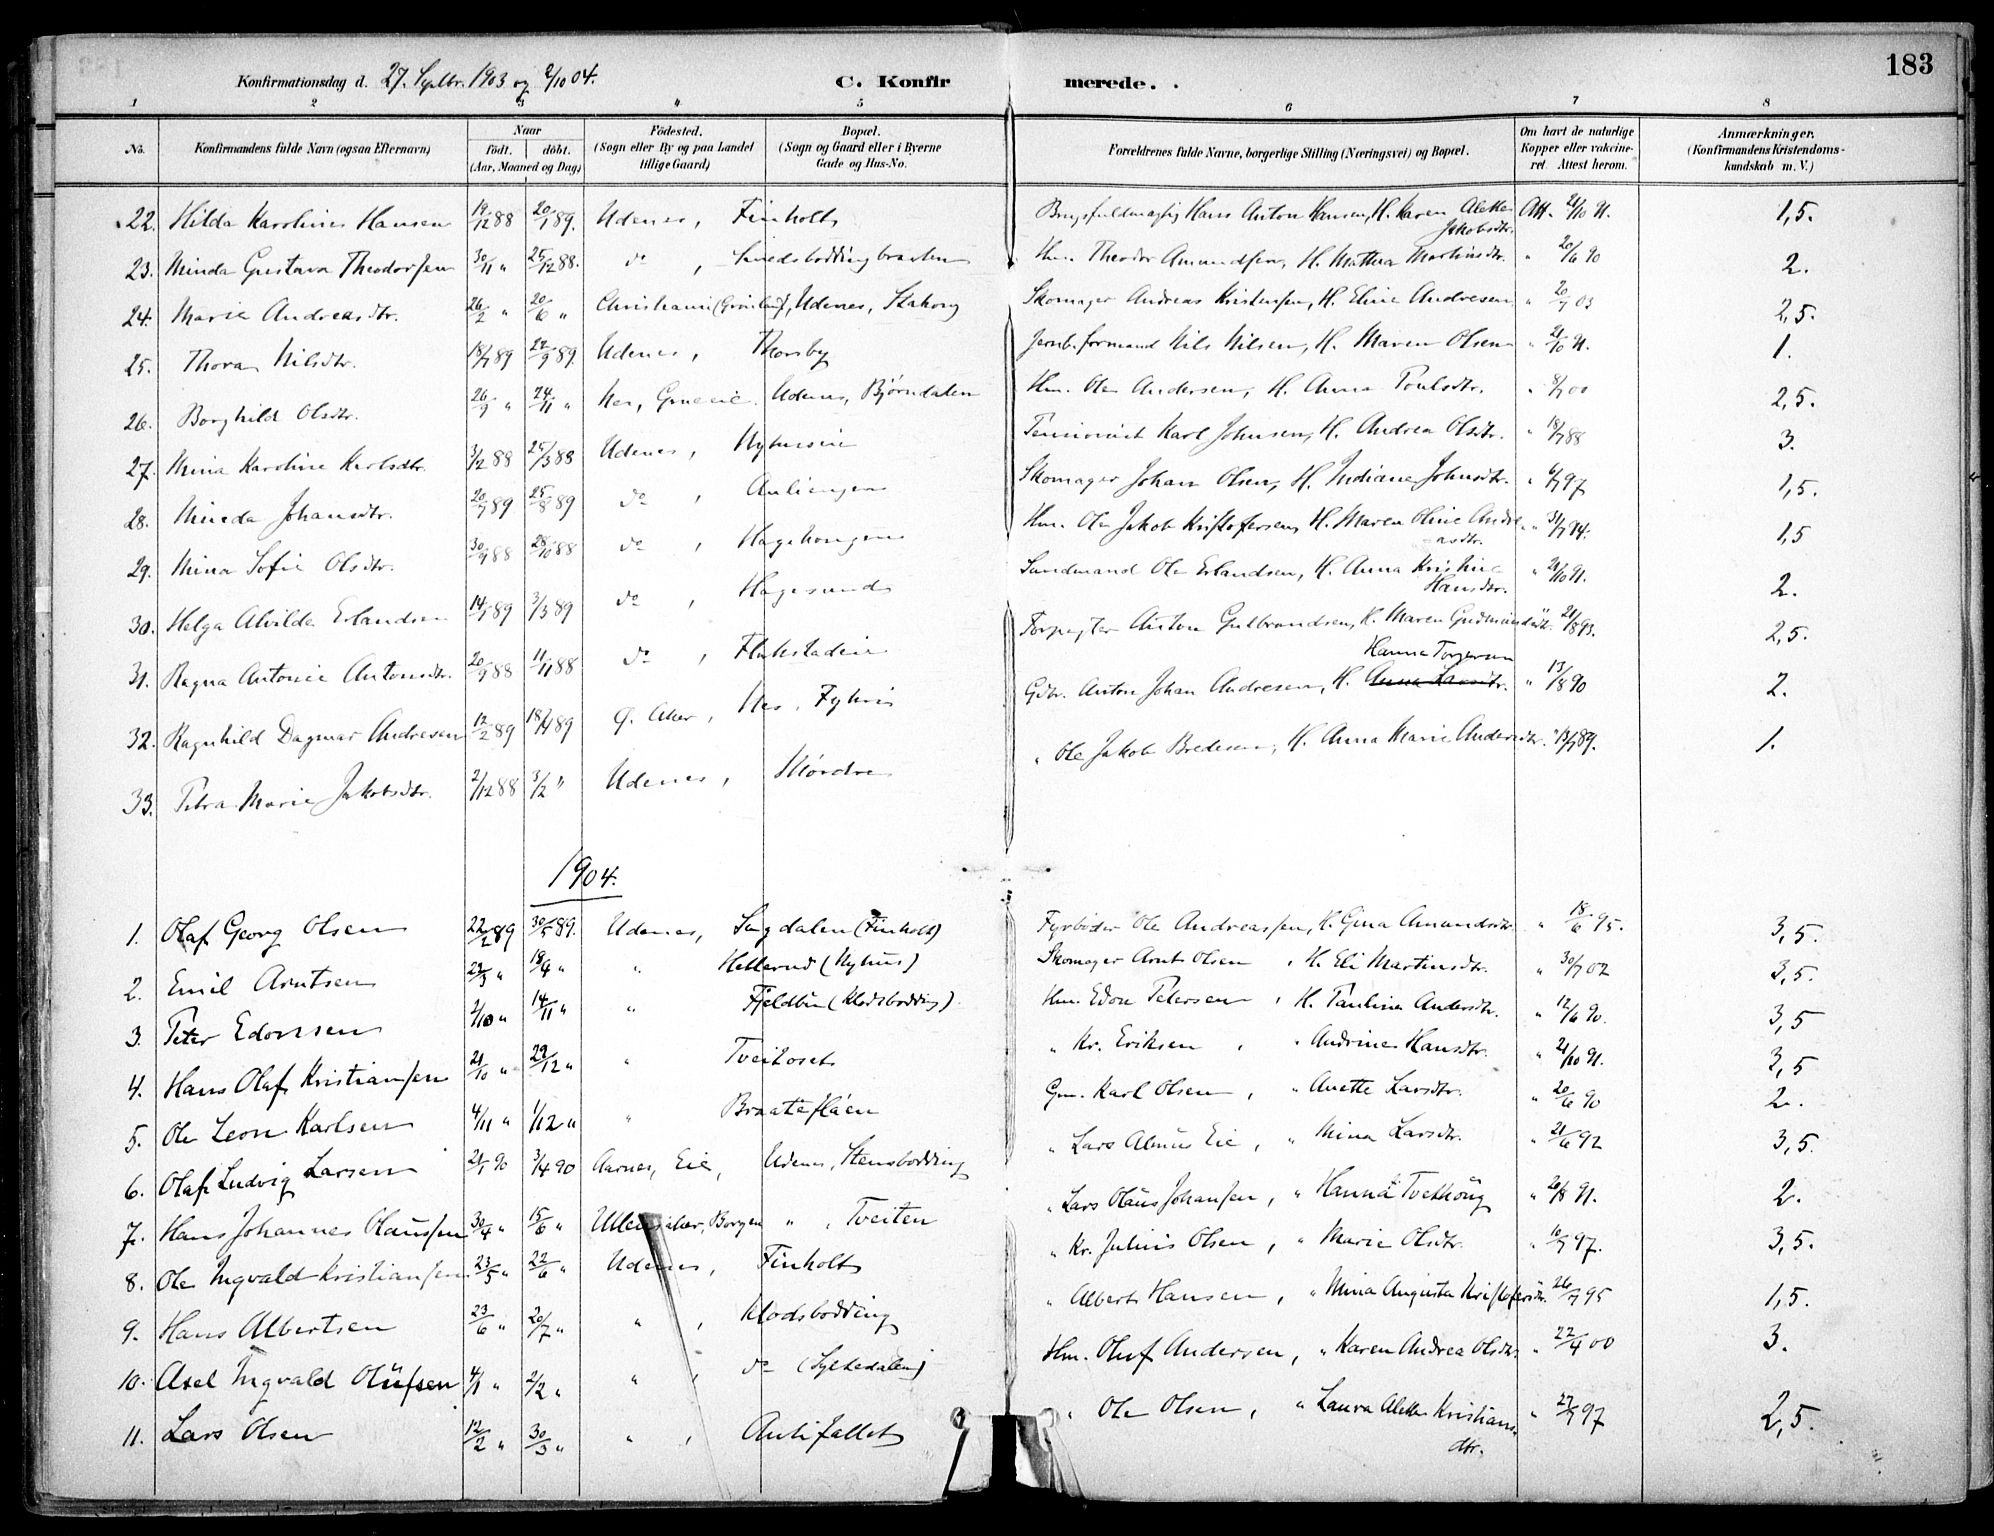 183
Konfirmationsdag d. 27. Septbr. 1903 og 2/10 04.
C. Konfirmerede.
1 2 3 4 5 6 7 8
No. Konfirmandens fulde Navn (ogsaa Efternavn) Naar født. døbt. (Aar, Maaned og Dag) Fødested. (Sogn eller By og paa Landet tillige Gaard) Bopæl. (Sogn og Gaard eller i Byerne Gade og Hus-No. Forældrenes fulde Navne, borgerlige Stilling (Næringsvei) og Bopæl. Om havt de naturlige Kopper eller vakcineret. Attest herom. Anmærkninger. (Konfirmandens Kristendomskundskab m. V.)
22. Hilda Karoline Hansen 19/12 88 20/1 89. Udenes, Finholt Brugsfuldmægtig Hans Anton Hansen, H. Karen Alette Jakobsdtr. Att. 21/10 91. 1,5.
23. Minda Gustava Theodorsen 30/11 " 25/12 88. do, Smedsboddingbraaten Hm. Theodor Amundsen, H. Mathea Martinsdtr. " 20/6 90 2.
24. Marie Andreasdtr. 26/2 " 20/6 " Christiania (Grønland), Udenes, Skomager Andreas Kristensen, H. Eline Andresen " 20/7 03 2,5.
25. Thora Nilsdtr. 18/7 89 22/9 89 Udenes, Thorsby Jernb.formand Nils Nilsen, H. Maren Olsen " 21/10 91. 1.
26. Borghild Olsdtr. 26/9 " 24/11 " Nes, Udenes, Bjørndalen Hm. Ole Andersen, H. Anna Poulsdtr. " 8/7 00 2,5.
27. Mina Karoline Karlsdtr. 3/2 88 25/3 88 Udenes, Karl Johnsen, H. Andrea Olsdtr. " 18/7 88 3.
28. Minda Johansdtr. 20/7 89 25/8 89 do, Auliengen Skomager Johan Olsen, H. Indiane Johnsdtr. " 6/7 97 1,5.
29. Mina Sofie Olsdtr. 30/9 88 28/10 88 do, Hagehaugen Hm. Ole Jakob Kristofersen, H. Maren Oline Andreasdtr. " 31/7 94. 1,5
30. Helga Alvilda Erlandsen 14/1 89 3/3 89 do, Hagesund Sundmand Ole Erlandsen, H. Anna Kristine Hansdtr. " 21/10 91. 2.
31. Ragna Antonie Antonsdtr. 20/9 88 11/11 88 do, Flakstadeie Forpagter Anton Gulbrandsen, H. Maren Gudmundsdtr. 21/8 93. 2,5.
32. Ragnhild Dagmar Andresen 12/2 89 18/4 89 Ø. Aker, Nes, Gdbr. Anton Johan Andresen, H. Hanna Torgersen " 13/8 90 2.
33. Petra Marie Jakobsdtr. 2/12 88 3/2 " Udenes, Mørdre " Ole Jakob Bredesen, H. Anna Marie Andersdtr. " 13/7 89. 1.
1904.
1. Olaf Georg Olsen 22/2 89 30/5 89. Udenes, Sagdalen (Finholt) Fyrbøder Ole Andreassen, H. Gina Amundsdtr. " 18/6 95. 3,5.
2. Emil Arntsen 22/3 " 18/4 " " Hellerud (Nyhus) Skomager Arnt Olsen, H. Eli Martinsdtr. " 30/7 02 3,5.
3. Peter Edonsen 2/10 " 14/11 " " Fjeldbu (Klodsbodding) Hm. Edon Petersen, H. Pauline Andersdtr. " 12/6 90. 3,5
4. Hans Olaf Kristiansen 21/10 " 29/12 " " Tveitoset " Kr. Eriksen, " Andrine Hansdtr. " 21/10 91. 3,5
5. Ole Leon Karlsen 4/11 " 1/12 " " Braatefløen Gm. Karl Olsen, " Anette Larsdtr. " 20/6 90 2.
6. Olaf Ludvig Larsen 21/1 90 3/4 90 Aarnes, Eie, Udenes, Stensbodding " Lars Almus Eie, " Mina Larsdtr. " 21/6 92 3,5.
7. Hans Johannes Olaussen 30/4 " 15/6 " Ullensaker, Borgen ", Tveiten " Lars Olaus Johansen, " Hanna Tvethaug " 26/8 91. 2.
8. Ole Ingvald Kristiansen 23/5 " 22/6 " Udenes, Finholt " Kr. Julius Olsen, " Marie Olsdtr. " 10/7 97. 3,5.
9. Hans Albertsen 23/6 " 20/7 " ", Klodsbodding " Albert Hansen, " Mina Augusta Kristofersdtr. 26/7 95 1,5.
10. Axel Ingvald Olufsen 4/1 " 2/2 " ", do (Syltedalen) Hm. Oluf Andersen, " Karen Andrea Olsdtr. " 22/4 00 3.
11. Lars Olsen 12/2 " 30/3 " ", Aulifallet " Ole Olsen, " Laura Alette Kristiansdtr. " 27/7 97 2,5.